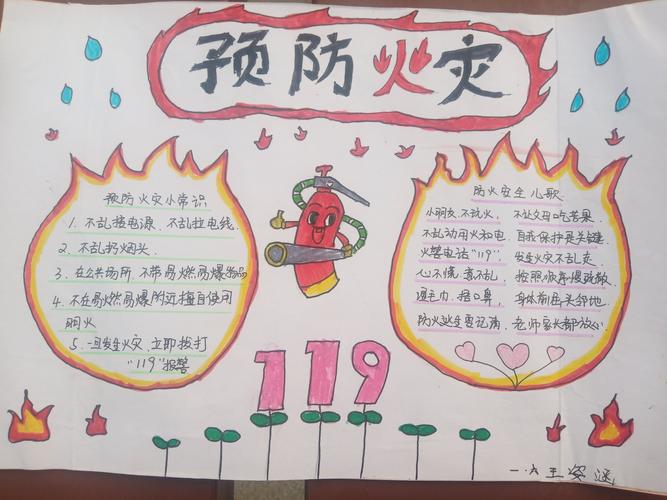 预防火灾
预防火灾小常识
1、不乱接电源、不乱拉电线.
2、不乱扔烟头.
3、在公共场所,不带易燃易爆物品
4、不在易燃易爆附近擅自使用
明火
5、一旦发生火灾,立即拨打
"119"报警
防火安全儿歌
小朋友,不玩火, 不让父母吃苦果.
不乱动用火和电, 自我保护是关键.
火警电话"119", 发生火灾不乱走.
心不慌,意不乱, 按照顺序慢疏散
湿毛巾,捂口鼻, 身体前屈头邻地.
防火逃生要记清, 老师家长都放心
119
一.六王姿涵